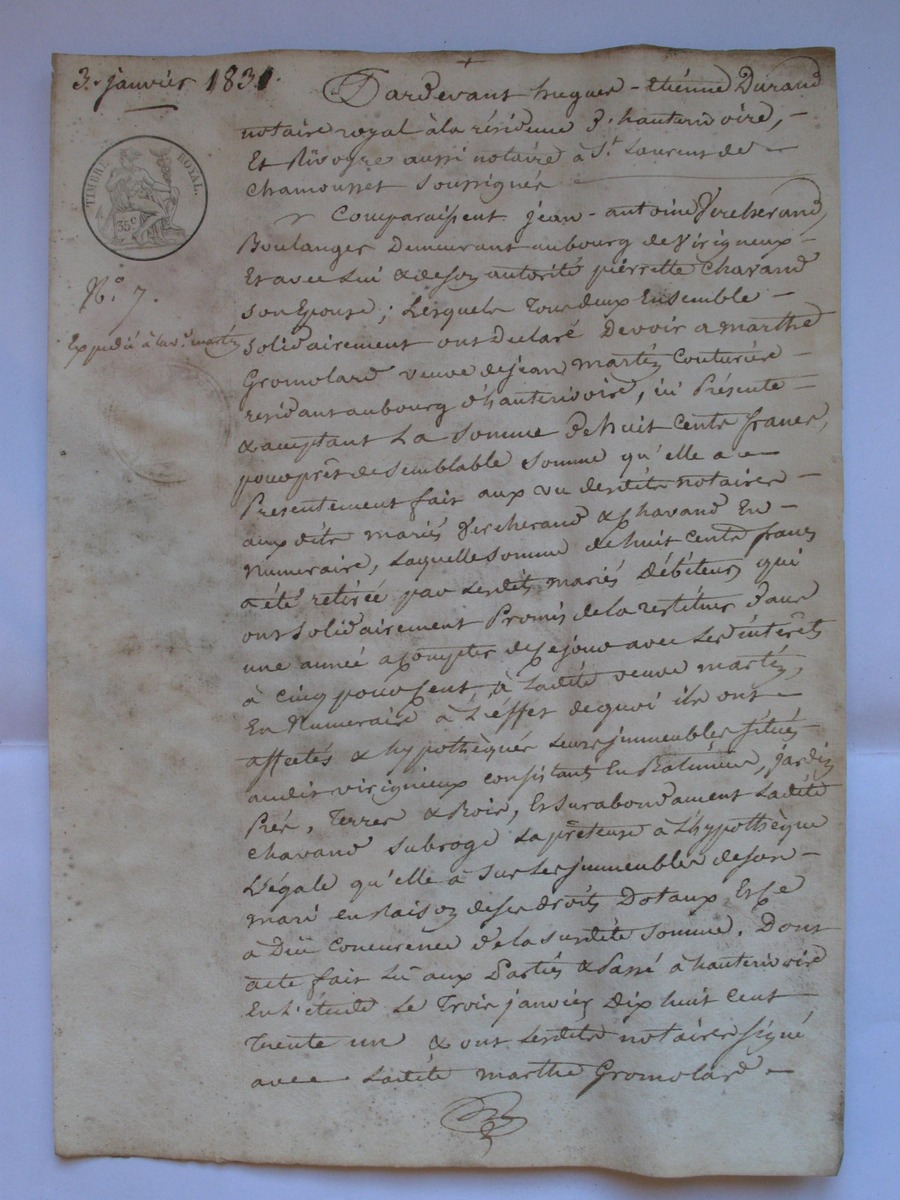 3. janvier 1831.
TIMBRE ROYAL.
35 c
N.o 7.
Expedié à la v.e martin
Pardevant hugues-Etienne Durand
notaire royal à la résidence d'hauterivoire, -
Et Rivoyre aussi notaire à St. Laurent de
Chamousset soussignés
Comparaissent jean-antoine Vercherand,
Boulanger Demeurant au bourg de Virigneux -
Et avec Lui & de son autorité pierrette Chavand
son Epouse; Lesquels Tous deux Ensemble -
Solidairement ont Declaré Devoir a marthe
Gromolard veuve de jean martin Couturière -
residant au bourg d'hauterivoire, ici Présente -
& acceptant La somme De huit Cents francs,
pour prêt de semblable somme qu'elle a
Presentement fait aux vu desdits notaires -
aux dits mariés Vercherand & Chavand En -
Numeraire, Laquelle somme de huit cents francs
a été retirée par Lesdits mariés Débiteurs qui
ont solidairement Promis de la restituer dans
une année a Compter de ce jour avec Les intérêts
à Cinq pour Cent, à Ladite veuve martin,
En Numeraire à L'effet de quoi ils ont -
affectés & hypothèqués Leurs immeubles situés
audit virigneux consistant En Batiment, jardin
Pré, Terres & Bois, Et Surabondament Ladite
Chavand subroge La prêteuse à L'hypothèque
Légale qu'elle à sur Les immeubles de son -
mari en Raison de ses droits Dotaux Et Ce
à Düe Concurence de la susdite somme. Dont
acte fait Lû aux Parties & Passé à hauterivoire
En L'etude Le Trois janvier Dix huit Cent
Trente un & ont Lesdits notaires signé
avec Ladite marthe Gromolard -